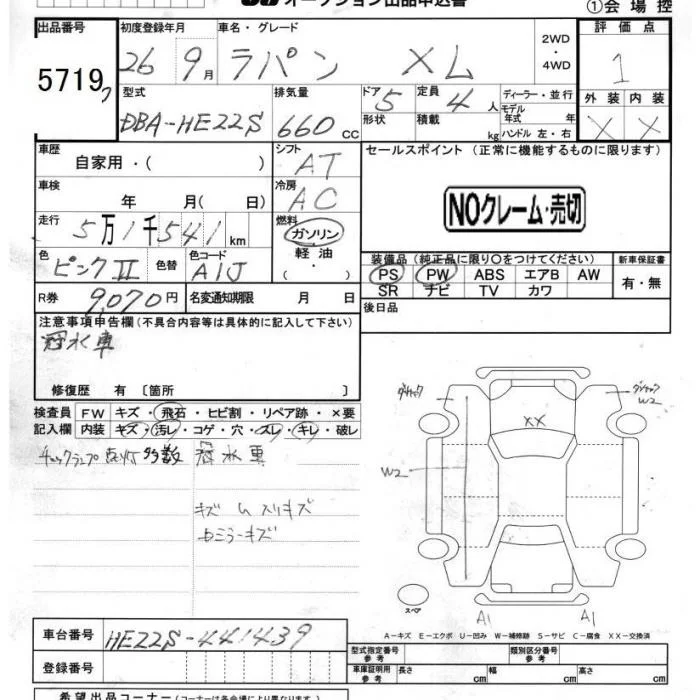 オークション出品申込書
①会場控
出品番号 初度登録年月 車名・グレード 2WD ・ 4WD 評価点
5719 26 9月 ラパン XL 1
型式 排気量 ドア 5 定員 4人 ディーラー・並行 外装 内装
DBA-HE22S 660 CC 形状 積載 kg モデル年式 年 ハンドル 左・右 X X
車歴 自家用・( ) シフト AT セールスポイント (正常に機能するものに限ります)
車検 年 月(日) 冷房 AC
NOクレーム・売切
走行 5万1千541km 燃料 ガソリン 軽油 ・( )
装備品(純正品に限り〇をつけてください) 新車保証書
色 ピンクII 色替 色コード A1J PS PW ABS エアB AW 有・無
SR ナビ TV カワ
R券 9,070円 名変通知期限 月 日 後日品
注意事項申告欄(不具合内容等は具体的に記入して下さい)
冠水車
修復歴 有 〔箇所 〕
検査員 FW キズ・飛石・ヒビ割・リペア跡・×要
記入欄 内装 キズ・汚レ・コゲ・穴・スレ・キレ・破レ
チェックランプ点灯多数 冠水車
キズ ム スリキズ
XX
W2
W2
スペア
A1 A1
A-キズ E-エクボ U-凹み W-補修跡 S-サビ C-腐食 XX-交換済
車台番号 HE22S-441439
型式指定番号 参考 類別区分番号 参考
登録番号
車庫証明用 参考 長さ cm 幅 cm 高さ cm
希望出品コーナー(コーナーは各会場により異なります)